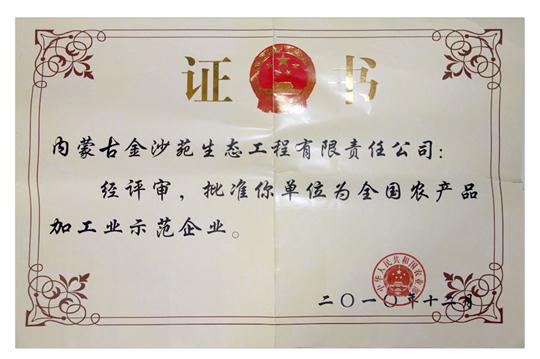 证书
内蒙古金沙苑生态工程有限责任公司：
经评审，批准你单位为全国农产品
加工业示范企业。
中华人民共和国农业部
二〇一〇年十二月